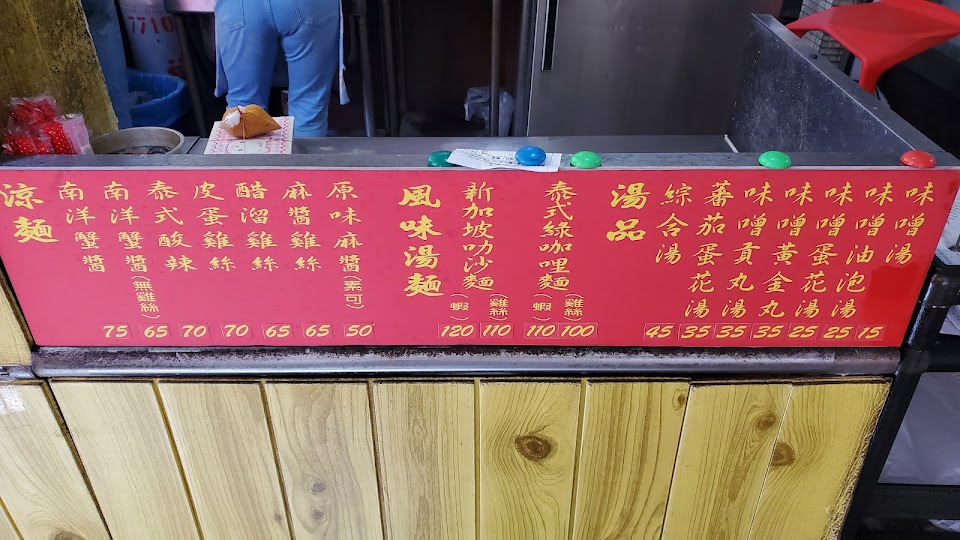 涼麵
南洋蟹醬
75
南洋蟹醬(無雞絲)
65
泰式酸辣
70
皮蛋雞絲
70
醋溜雞絲
65
麻醬雞絲
65
原味麻醬(素可)
50
風味湯麵
新加坡叻沙麵
(蝦)
120
(雞絲)
110
泰式綠咖哩麵
(蝦)
110
(雞絲)
100
湯品
綜合湯
45
蕃茄蛋花湯
35
味噌貢丸湯
35
味噌黃金丸湯
35
味噌蛋花湯
25
味噌油泡湯
25
味噌湯
15